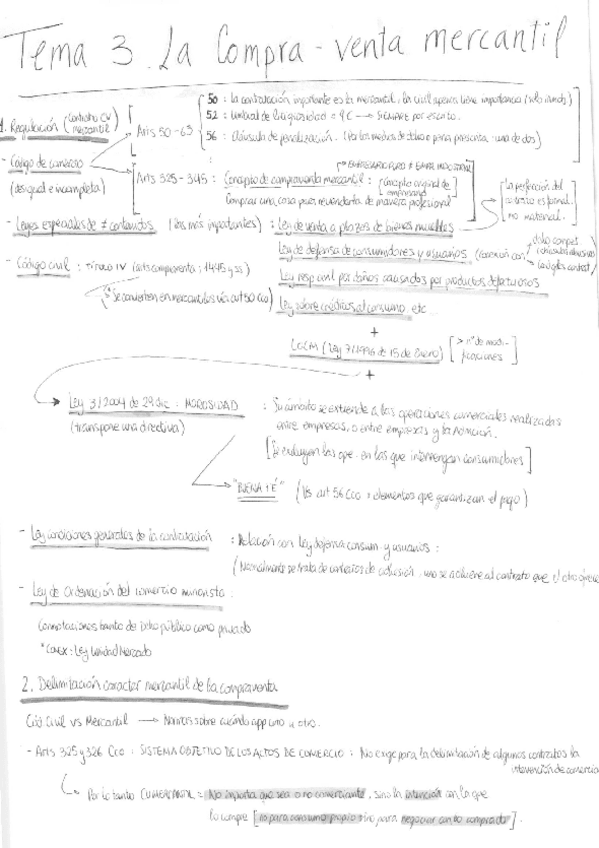 Tema 3. La Compra-venta mercantil
1. Regulación (Contrato CV mercantil)
Arts 50-63
50: la contratación importante es la mercantil, la civil apenas tiene importancia
52: Umbral de
→ siempre por escrito.
56: Cláusula de penalización.
- Código de comercio
(desigual e incompleta)
Arts 325-345: Concepto de compraventa mercantil:
Comprar una cosa para revenderla de manera profesional
La perfección del contrato es formal no material.
- Leyes especiales de ≠ contenidos (las más importantes): Ley de venta a plazos de bienes muebles
Ley de defensa de consumidores y usuarios (conexión con
- Código civil: Título IV (arts compraventa: 1445 y ss)
Ley resp civil por daños causados por productos defectuosos
*Se convierten en mercantiles vía art 50 Cco
Ley sobre créditos al consumo, etc
+
LOCM (Ley 7/1996 de 15 de Enero) [> nº de modificaciones]
+
Ley 3/2004 de 29 dic: MOROSIDAD
(transpone una directiva)
: Su ámbito se extiende a las operaciones comerciales realizadas
entre empresas, o entre empresas y la Admcion.
[Se excluyen las ope. en las que intervengan consumidores]
"BUENA FÉ" (Vs art 56 Cco: elementos que garantizan el pago)
- Ley condiciones generales de la contratación : Relación con Ley defensa consum. y usuarios:
(Normalmente se trata de contratos de adhesión, uno se adhiere al contrato que el otro ofrece
- Ley de Ordenación del comercio minorista.
Connotaciones tanto de Dcho público como privado
*Conex: Ley Unidad Mercado
2. Delimitación caracter mercantil de la compraventa
Cód Civil vs Mercantil → Normas sobre cuándo app uno u otro.
- Arts 325 y 326 Cco: SISTEMA OBJETIVO DE LOS ACTOS DE COMERCIO: No exige para la delimitación de algunos contratos la
intervención de comercia
Por lo tanto CV MERCANTIL = No importa que sea o no comerciante, sino la intención con la que
lo compre [no para consumo propio sino para negociar con lo comprado].